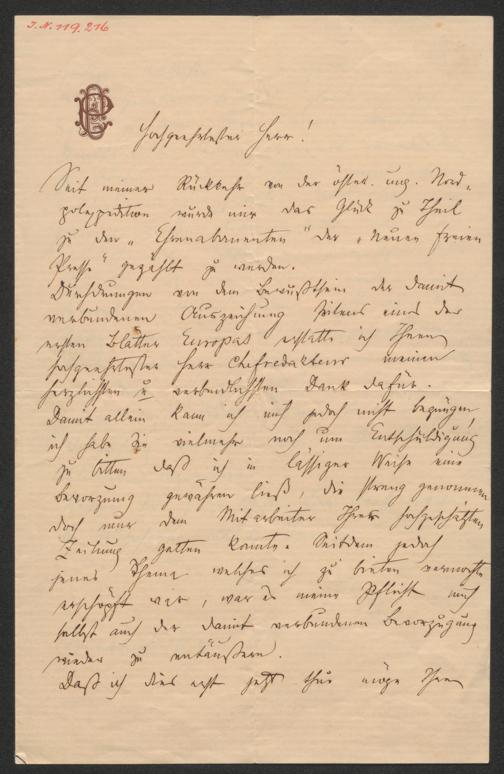 I.N. 119.216
Hochgeehrtester Herr!
Seit meiner Rückkehr von der österr. ung. Nord-
polexpedition wurde mir das Glück zu Theil
zu den „Ehrenabonenten" der „Neuen freien
Presse" gezählt zu werden.
Durchdrungen von dem Bewußtsein der damit
verbundenen Auszeichnung Seitens eines der
ersten Blätter Europas erstatte ich Ihnen
hochgeehrtester Herr Chefredakteur meinen
herzlichsten u verbindlichsten Dank dafür.
Damit allein kann ich mich jedoch nicht begnügen,
ich habe Sie vielmehr noch um Entschuldigung
zu bitten daß ich in lässiger Weise eine
Bevorzugung gewähren ließ, die streng genommen
doch nur dem Mitarbeiter Ihrer hochgeschätzten
Zeitung gelten konnte. Seitdem jedoch
jenes Thema welches ich zu bieten vermochte
erschöpft war, war es meine Pflicht mich
selbst auch der damit verbundenen Bevorzugung
wieder zu entäußern.
Daß ich dies erst jetzt thue möge Ihnen